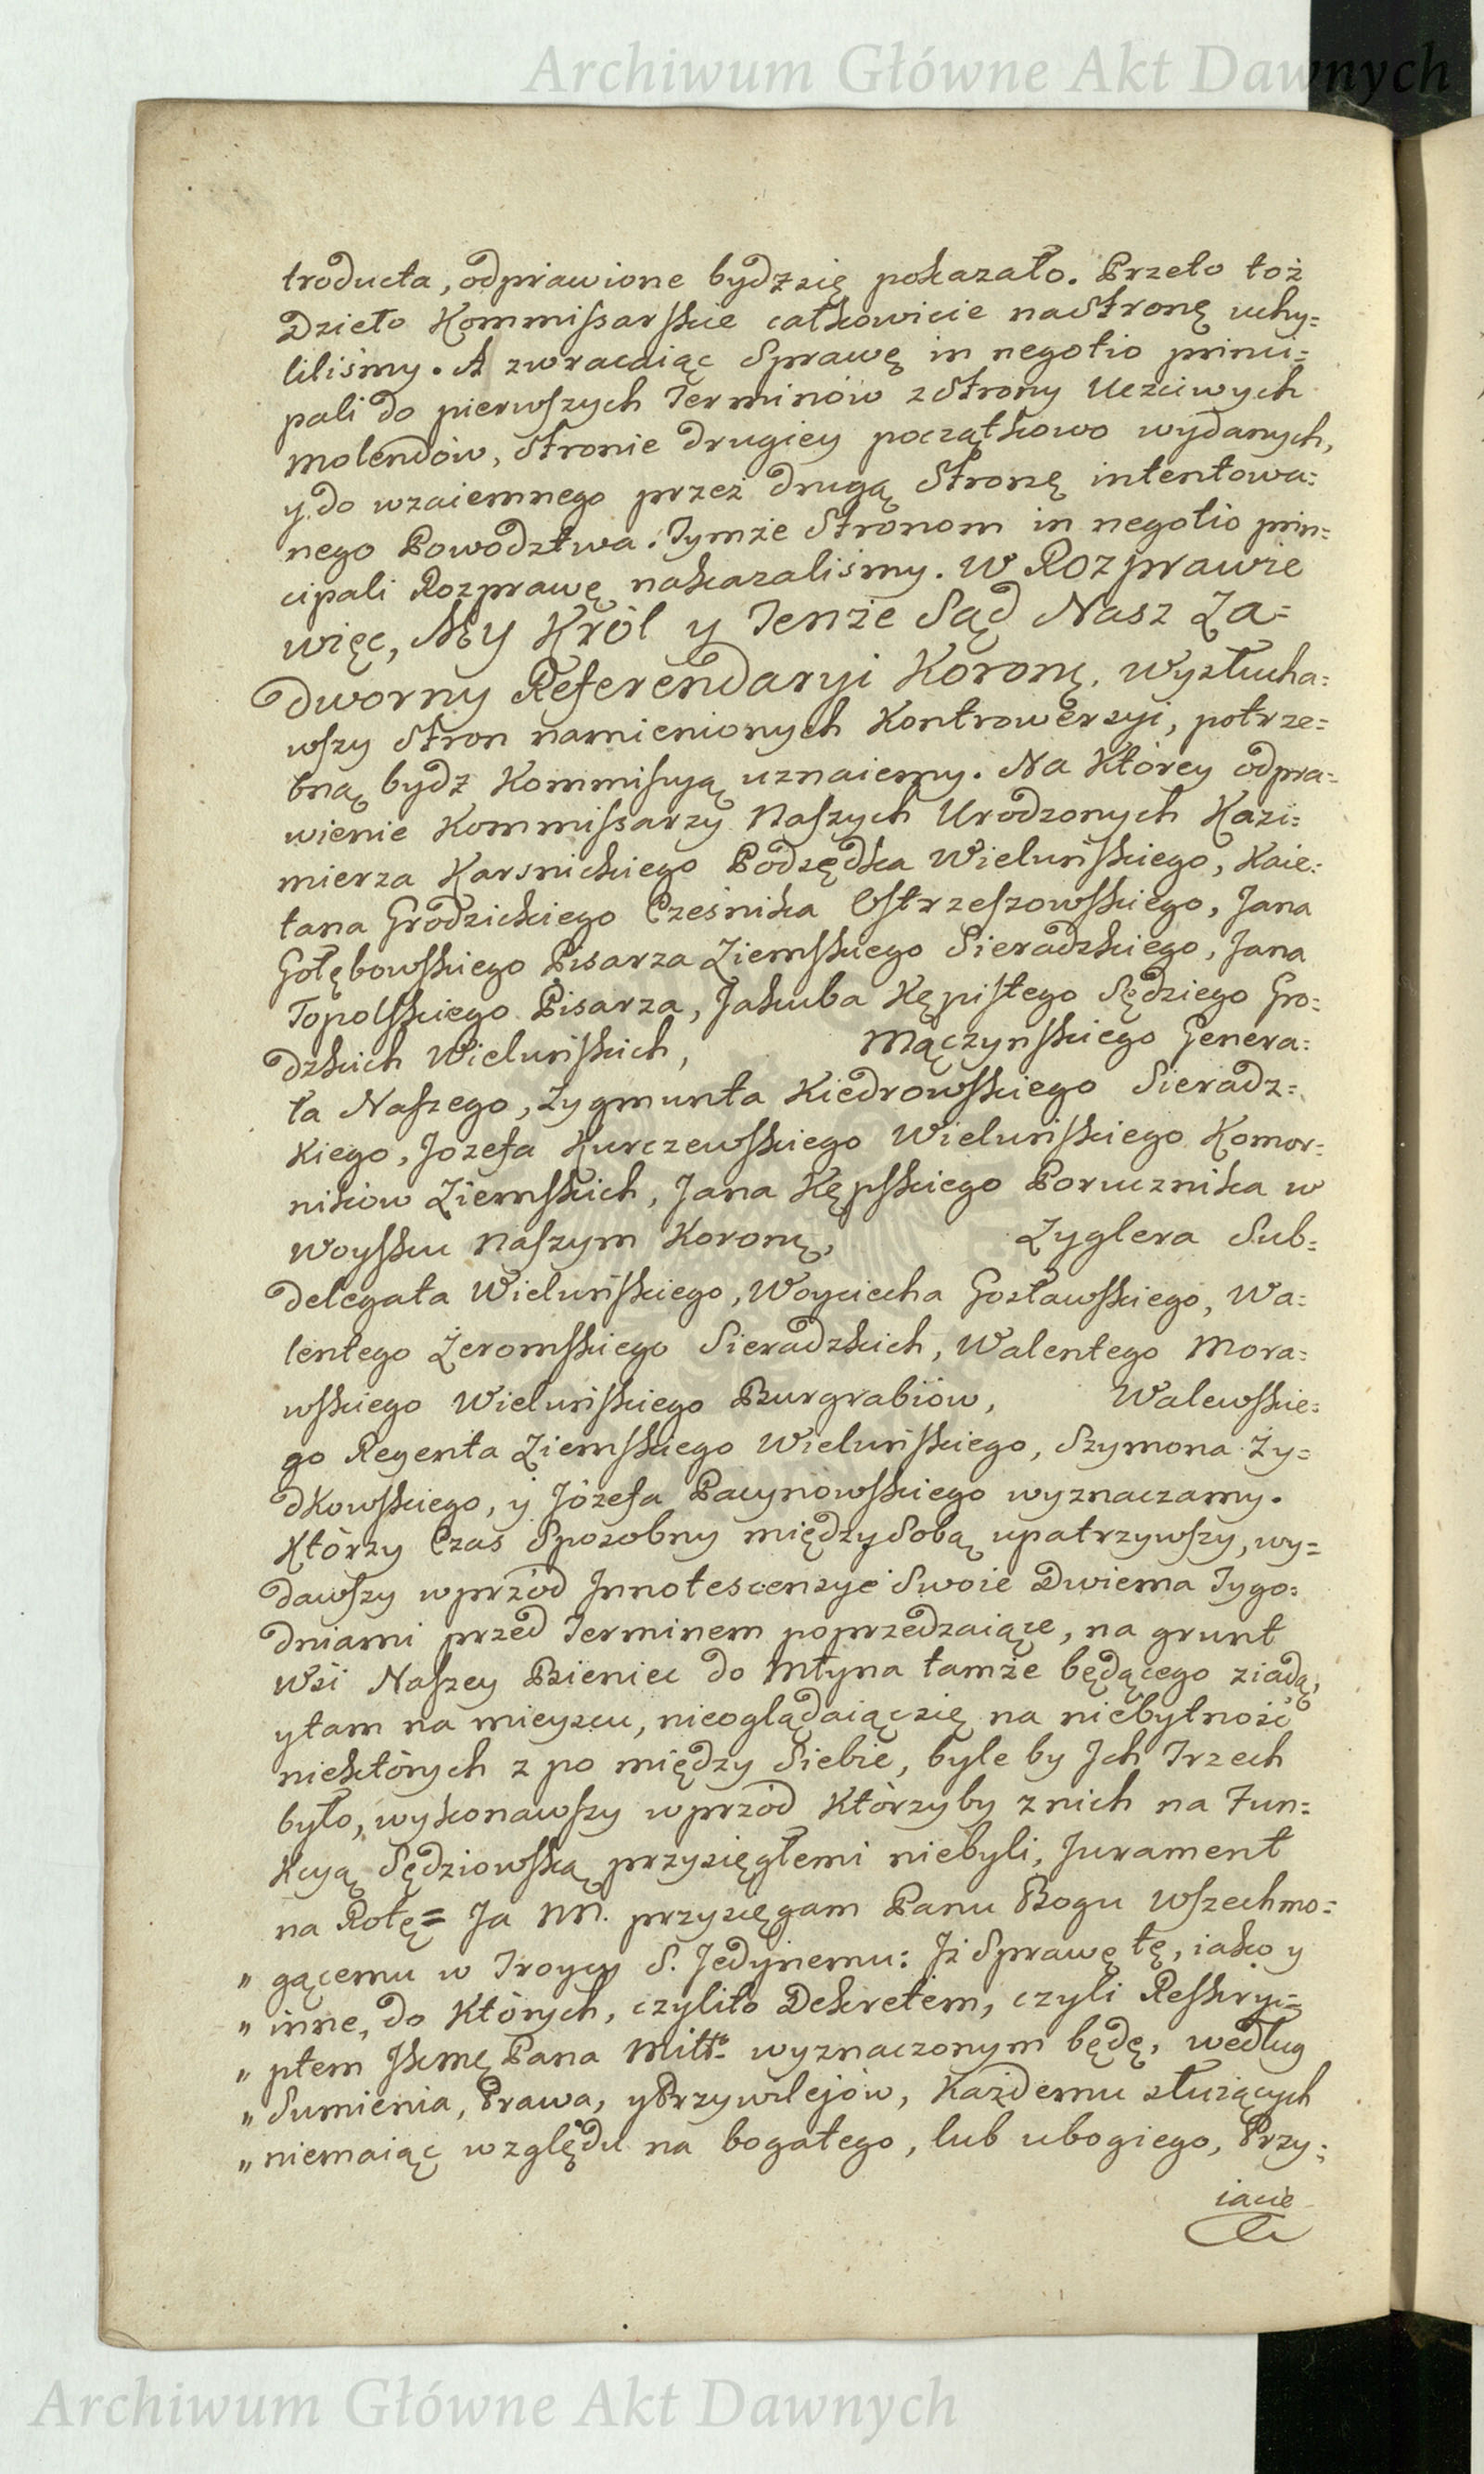 Archiwum Główne Akt Dawnych
troducta, odprawione bydz się pokazało. Przeto toż
Dzieło Kommissarskie całkowicie na Stronę uchy=
liliśmy. A zwracaiąc Sprawę in negotio princi=
pali do pierwszych Terminów z Strony Uczciwych
Molendów, Stronie drugiey początkowo wydanych,
y do wzaiemnego przez drugą Stronę intentowa=
nego Powodztwa. Tymże Stronom in negotio prin=
cipali Rozprawę nakazaliśmy. W Rozprawie
więc, My Król y Tenże Sąd Nasz Za=
dworny Referendaryi Koronę. Wysłucha=
wszy Stron namienionych Kontrowersyi, potrze=
bną bydz Kommissyą uznaiemy. Na Którey odpra=
wienie Kommissarzy Naszych Urodzonych Kazi=
mierza Karsnickiego Podsędka Wieluńskiego, Kaie=
tana Grodzickiego Cześnika Ostrzeszowskiego, Jana
Gołębowskiego Pisarza Ziemskiego Sieradzkiego, Jana
Topolskiego Pisarza, Jakuba Kępistego Sędziego Gro=
dzkich Wieluńskich, Mączynskiego Genera=
ła Naszego, Zygmunta Kiedrowskiego Sieradz=
Kiego, Jozefa Kurczewskiego Wieluńskiego Komor=
ników Ziemskich, Jana Kępskiego Porucznika w
Woysku Naszym Koronę, Zyglera Sub=
delegata Wieluńskiego, Woyciecha Gosławskiego, Wa=
lentego Żeromskiego Sieradzkich, Walentego Mora=
wskiego Wieluńskiego Burgrabiów, Walewskie=
go Regenta Ziemskiego Wieluńskiego, Szymona Ży=
dkowskiego, y Józefa Pacynowskiego wyznaczamy.
Którzy Czas Sposobny między Sobą upatrzywszy, wy=
dawszy wprzód Innotescensye Swoie Dwiema Tygo=
dniami przed Terminem poprzedzaiące, na grunt
Wsi Naszey Bieniec do Młyna tamże będącego ziadą,
y tam na mieyscu, nieoglądaiąc się na niebytność
niektórych z po między Siebie, byle by Ich Trzech
było, wykonawszy wprzód Którzyby z nich na Fun=
kcyą Sędziowską przysięgłemi niebyli, Jurament
na Rotę = Ja NN. przysięgam Panu Bogu Wszechmo=
„ gącemu w Troycy S. Jedynemu: Iż Sprawę tę, iako y
„ inne, do Których, czyli to Dekretem, czyli Reskry=
„ ptem Jkmę Pana Miłł° wyznaczonym będę, według
„ Sumienia, Prawa, y Przywilejów, Każdemu służących
„ niemaiąc względu na bogatego, lub ubogiego, Przy=
iacie
Archiwum Główne Akt Dawnych